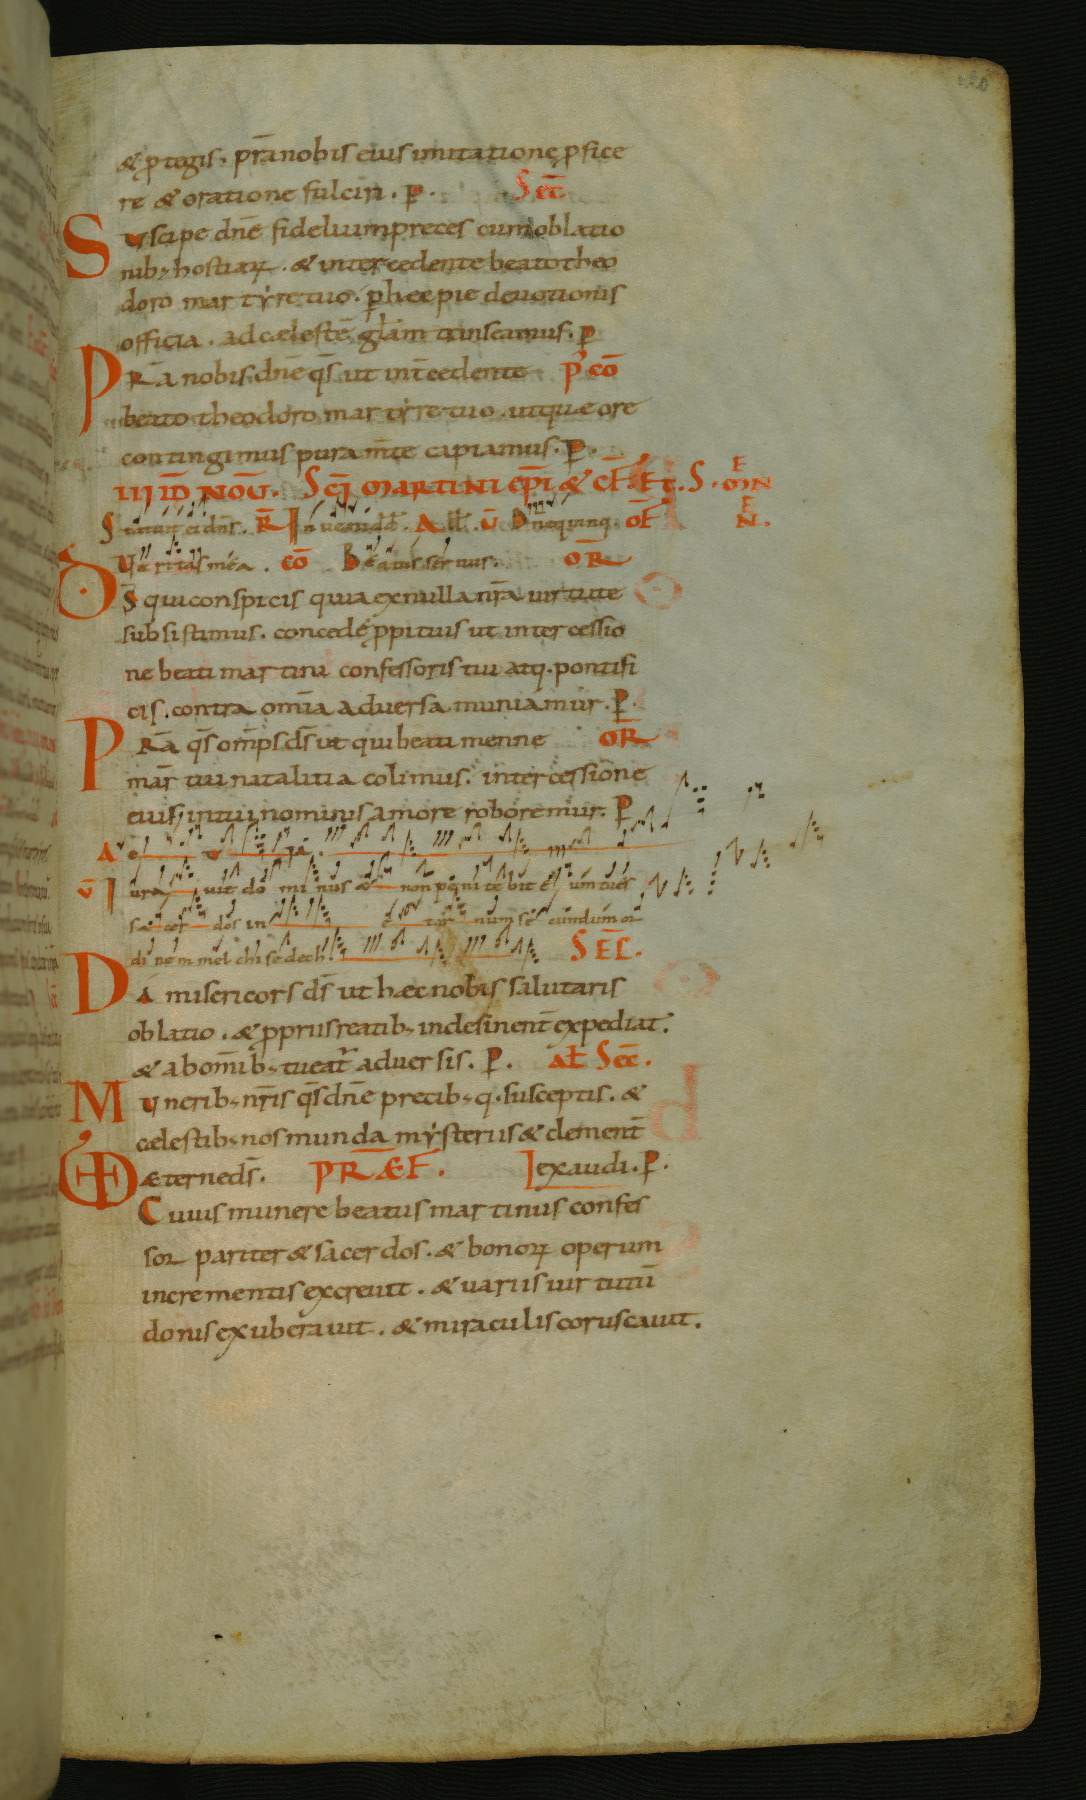 & ꝓtegis. p̄ra nobis eius imitatione ꝓfice
re & oratione fulciri. P̱. SEC̄
Suscipe dn̄e fidelium preces cum oblatio
nib; hostiaꝝ. & intercedente beato theo
doro martẏre tuo. ꝑ hęc pie deuotionis
officia. ad cęlestē glam̄ transeamus. P̱
PRa nobis dn̄e q̄s ut int̄cedente P̄ cō
beato theodoro martẏre tuo. ut quę ore
contingimus pura mte capiamus. P̱.
IIII ID NOU̅. SCI MARTINI EP̄I & CF̄. ET. S. MENNEN.
Statuit ei dn̄s. R̄ Inueni dd̄. A ll̄. U̅ Dn̄e quinq; OF̄
Ueritas mea. cō Beatus seruus. OR̄
DS qui conspicis quia ex nulla nr̄a uirtute
subsistimus. concede ꝓpitius ut intercessio
ne beati martini confessoris tui atq;. pontifi
cis. contra om̄ia aduersa muniamur. P̱.
PRa q̄s omp̄s ds̄ ut qui beati menne OR̄
mar̄ tui natalitia colimus. intercessione
eius in tui nominis amore roboremur. P̱
A e u ia.
U̅ Iura uit do mi nus & non pęnitebit eum tu es
sa cer dos in e ter num secundum or
dinem melchisedech. SEC̄.
DA misericors ds̄ ut hęc nobis salutaris
oblatio. & ꝓpriis reatib; indesinent̄ expediat.
& ab om̄ib; tueat̄ aduersis. P̱. AL̄ SEC̄.
MUnerib; nr̄is q̄s dn̄e precib; q;. susceptis. &
cęlestib; nos munda mẏsteriis & clement̄
æterne ds̄. PRÆF̄. exaudi. P̱.
Cuius munere beatus martinus confes
sor pariter & sacerdos. & bonoꝝ operum
incrementis excreuit. & uariis uirtutū
donis exuberauit. & miraculis coruscauit.